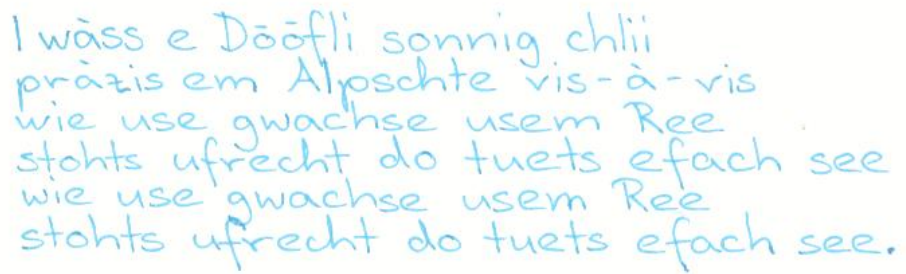 I wàss e Dööfli sonnig chlii
pràzis em Alposchte vis-à-vis
wie use gwachse usem Ree
stohts ufrecht do tuets efach see
wie use gwachse usem Ree
stohts ufrecht do tuets efach see.